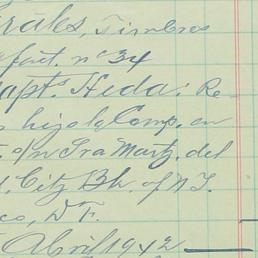 rales, Timbres
fact. nº 34
apts. Heda: Re-
hizo la Comp. en
o/n Fra Martz. del
City Bk. of N.Y.
co, D.F.
Abril 1942